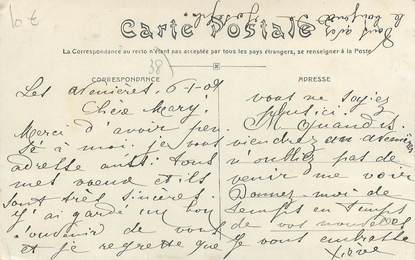 10 €
Dont avec
le bonjour
Joseph
Carte Postale
La Correspondance au recto n'étant pas acceptée par tous les pays étrangers, se renseigner à la Poste
38
CORRESPONDANCE
Les avenieres, 6-1-09
Chère Mary.
Merci d'avoir pen
sé à moi. je vous
adresse aussi tous
mes voeux et ils
sont très sincères.
J'ai gardé un bon
souvenir de vous
et je regrette que
ADRESSE
vous ne soyiez
plus ici.
Quand
viendrez
n'oubliez pas de
venir me voir
Donnez moi de
temps en temps
de vos nouvelles
je vous embrasse